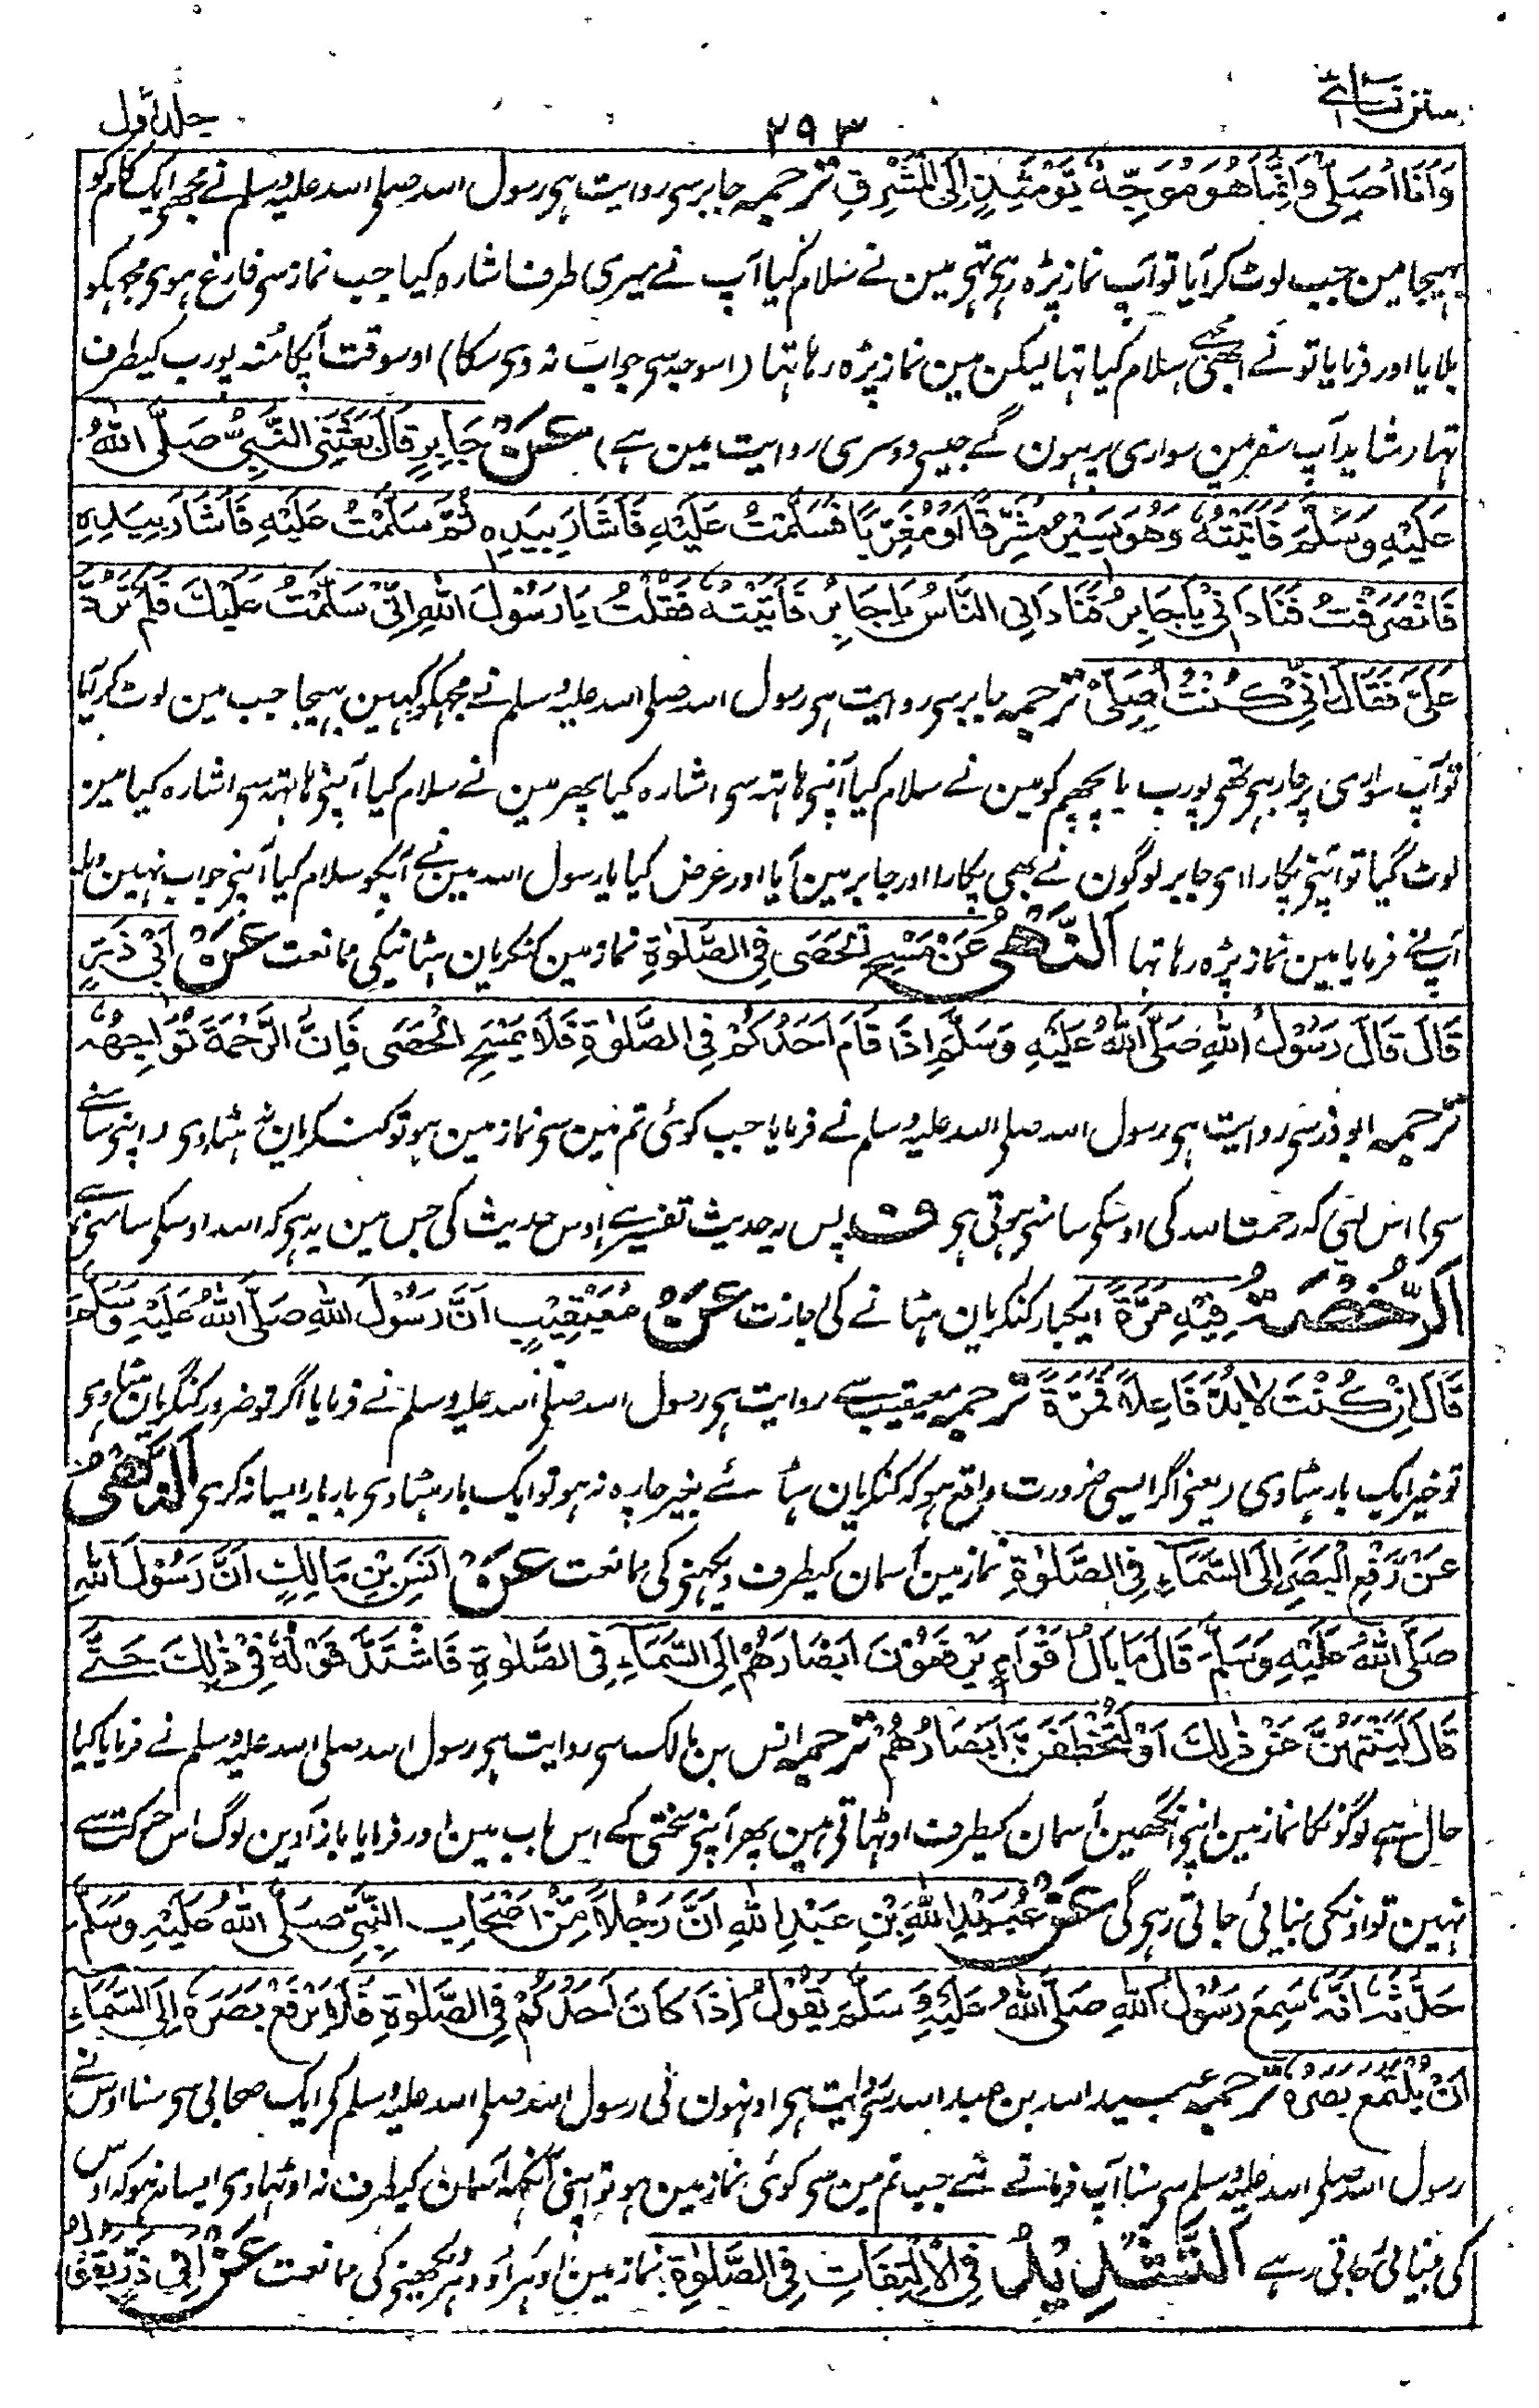 سنن نسائے
۲۹۳
جلد اول
وَاَنَا اُصَلِّیْ وَاِنَّمَا هُوَ مُوَجِّهٌ یَّوْمَئِذٍ اِلَی الْمَشْرِقِ ترجمہ جابر سی روایت ہی رسول اللہ صلے اللہ علیہ وسلم نے مجھی ایک کام کو
بہیجا مین جب لوٹ کر آیا تو آپ نماز پڑہ رہی تہی مین نے سلام کیا آپ نے میری طرف اشارہ کیا جب نماز سی فارغ ہوی مجہکو
بلایا اور فرمایا تو نے ابھی مجھے سلام کیا تہا لیکن مین نماز پڑہ رہا تہا (اسوجہ سی جواب نہ دی سکا) اوسوقت آپکا منہ پورب کیطرف
تہا (شاید آپ سفر مین سواری پر ہون گے جیسی دوسری روایت مین ہے) عَنْ جَابِرٍ قَالَ بَعَثَنِی النَّبِیُّ صَلَّی اللّٰهُ
عَلَیْهِ وَسَلَّمَ فَاَتَیْتُهٗ وَهُوَ یَسِیْرُ مُشَرِّقًا اَوْ مُغَرِّبًا فَسَلَّمْتُ عَلَیْهِ فَاَشَارَ بِیَدِهٖ ثُمَّ سَلَّمْتُ عَلَیْهِ فَاَشَارَ بِیَدِهٖ
فَانْصَرَفْتُ فَنَادَانِیْ یَا جَابِرُ فَنَادَانِی النَّاسُ یَا جَابِرُ فَاَتَیْتُهٗ فَقُلْتُ یَا رَسُوْلَ اللّٰهِ اِنِّیْ سَلَّمْتُ عَلَیْكَ فَلَمْ تَرُدَّ
عَلَیَّ فَقَالَ اِنِّیْ كُنْتُ اُصَلِّیْ ترجمہ جابر سی روایت ہی رسول اللہ صلے اللہ علیہ وسلم نے مجہکو کہین بہیجا جب مین لوٹ کر آیا
تو آپ سواری پر جا رہی تھی پورب یا پچھم کو مین نے سلام کیا آپنی ہاتہ سی اشارہ کیا پھر مین نے سلام کیا آپنی ہاتہ سی اشارہ کیا مین
لوٹ گیا تو آپنی پکارا ای جابر لوگون نے بھی پکارا اور جابر مین آیا اور عرض کیا یا رسول اللہ مین نے آپکو سلام کیا آپنی جواب نہین دیا
آپ نے فرمایا مین نماز پڑہ رہا تہا اَلنَّهْیُ عَنْ مَسْحِ الْحَصَی فِی الصَّلٰوةِ نماز مین کنکریان ہٹانیکی ممانعت عَنْ اَبِیْ ذَرٍّ
قَالَ قَالَ رَسُوْلُ اللّٰهِ صَلَّی اللّٰهُ عَلَیْهِ وَسَلَّمَ اِذَا قَامَ اَحَدُكُمْ فِی الصَّلٰوةِ فَلَا یَمْسَحِ الْحَصَی فَاِنَّ الرَّحْمَةَ تُوَاجِهُهٗ
ترجمہ ابو ذر سی روایت ہی رسول اللہ صلے اللہ علیہ وسلم نے فرمایا جب کوئی تم مین سی نماز مین ہو تو کنکریان نہ ہٹاوی (اپنی سامنے
سی) اس لیی کہ رحمت اللہ کی اوسکی سامنی ہوتی ہی ف پس یہ حدیث تفسیر ہے اوس حدیث کی جس مین یہ ہی کہ اللہ اوسکی سامنی ہے
اَلرُّخْصَةُ فِیْهِ مَرَّةً ایکبار کنکریان ہٹانے کی اجازت عَنْ مُعَیْقِیْبٍ اَنَّ رَسُوْلَ اللّٰهِ صَلَّی اللّٰهُ عَلَیْهِ وَسَلَّمَ
قَالَ اِنْ كُنْتَ لَا بُدَّ فَاعِلًا فَمَرَّةً ترجمہ معیقیب سے روایت ہی رسول اللہ صلے اللہ علیہ وسلم نے فرمایا اگر تو ضرور کنکریان ہٹاوی
تو خیر ایک بار ہٹاوی (یعنی اگر ایسی ضرورت واقع ہو کہ کنکریان ہٹائے بغیر چارہ نہ ہو تو ایک بار ہٹاوی بار بار ایسا نہ کری اَلنَّهْیُ
عَنْ رَفْعِ الْبَصَرِ اِلَی السَّمَآءِ فِی الصَّلٰوةِ نماز مین آسمان کیطرف دیکہنی کی ممانعت عَنْ اَنَسِ بْنِ مَالِكٍ اَنَّ رَسُوْلَ اللّٰهِ
صَلَّی اللّٰهُ عَلَیْهِ وَسَلَّمَ قَالَ مَا بَالُ اَقْوَامٍ یَرْفَعُوْنَ اَبْصَارَهُمْ اِلَی السَّمَآءِ فِی الصَّلٰوةِ فَاشْتَدَّ قَوْلُهٗ فِیْ ذٰلِكَ حَتّٰی
قَالَ لَیَنْتَهُنَّ عَنْ ذٰلِكَ اَوْ لَتُخْطَفَنَّ اَبْصَارُهُمْ ترجمہ انس بن مالک سی روایت ہی رسول اللہ صلے اللہ علیہ وسلم نے فرمایا کیا
حال ہے لوگونکا نماز مین اپنی آنکھین آسمان کیطرف اوٹہاتی ہین پھر آپنی سختی کے اس باب مین اور فرمایا باز آوین لوگ اس حرکت سے
نہین تو اونکی بینائی جاتی رہی گی عَنْ عُبَیْدِ اللّٰهِ بْنِ عَبْدِ اللّٰهِ اَنَّ رَجُلًا مِّنْ اَصْحَابِ النَّبِیِّ صَلَّی اللّٰهُ عَلَیْهِ وَسَلَّمَ
حَدَّثَهٗ اَنَّهٗ سَمِعَ رَسُوْلَ اللّٰهِ صَلَّی اللّٰهُ عَلَیْهِ وَسَلَّمَ یَقُوْلُ اِذَا كَانَ اَحَدُكُمْ فِی الصَّلٰوةِ فَلَا یَرْفَعْ بَصَرَهٗ اِلَی السَّمَآءِ
اَنْ یُّلْتَمَعَ بَصَرُهٗ ترجمہ عبید اللہ بن عبد اللہ سی روایت ہی اونہون نی رسول اللہ صلے اللہ علیہ وسلم کی ایک صحابی سی سنا اوس نے
رسول اللہ صلے اللہ علیہ وسلم سی سنا آپ فرماتے تھے جب تم مین سی کوئی نماز مین ہو تو اپنی آنکھہ آسمان کیطرف نہ اوٹہاوی ایسا نہو کہ اوس
کی بینائی جاتی رہے اَلتَّشْدِیْدُ فِی الْاِلْتِفَاتِ فِی الصَّلٰوةِ نماز مین ادہر اودہر دیکھنی کی ممانعت عَنْ اَبِیْ ذَرٍّ یَقُوْلُ